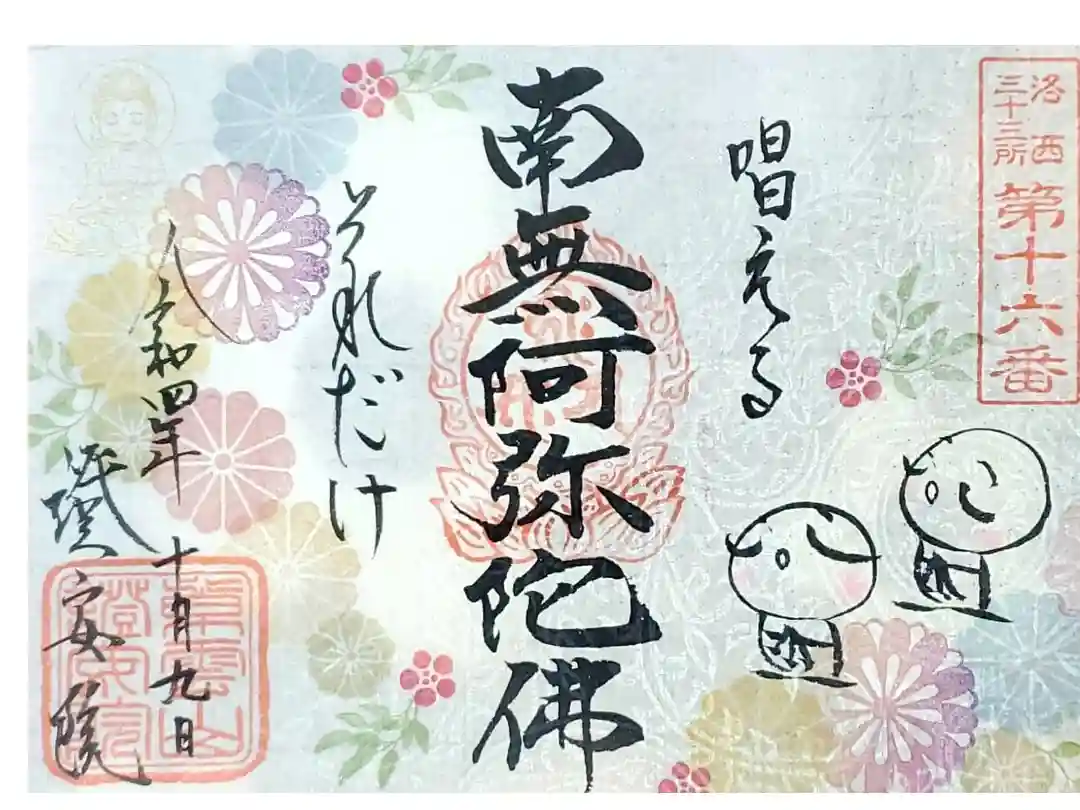 洛西
三十三所
第十六番
唱える
南無阿弥陀佛
それだけ
令和四年 十月九日
證安院